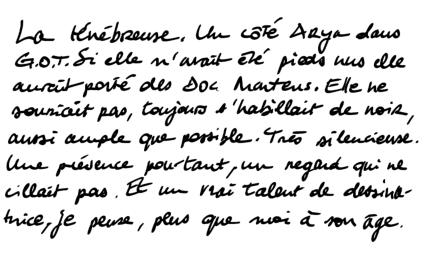 La ténébreuse. Un côté Arya dans
G.O.T. Si elle n'avait été pieds nus elle
aurait porté des Doc Martens. Elle ne
souriait pas, toujours s'habillait de noir,
aussi ample que possible. Très silencieuse.
Une présence pourtant, un regard qui ne
cillait pas. Et un vrai talent de dessina-
trice, je pense, plus que moi à son âge.